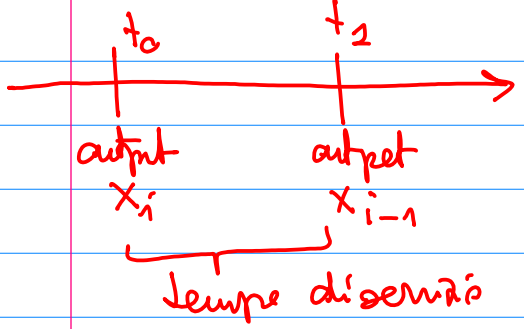 t₀ t₁
output output
xᵢ xᵢ₋₁
tempo di servizio